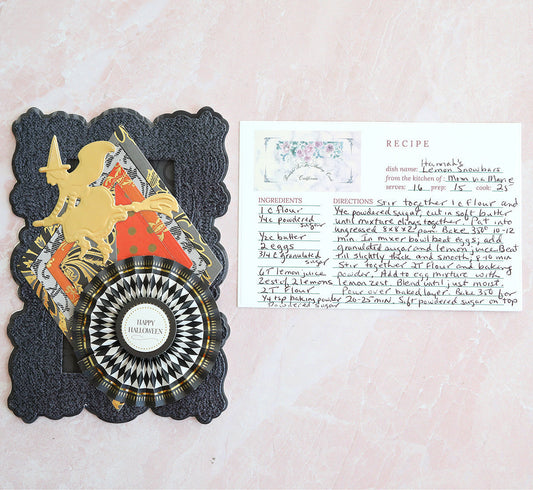 HAPPY
HALLOWEEN
RECIPE
Hannah's
dish name: Lemon Snowbars
from the kitchen of: Mom via Marie
serves: 16 prep: 15 cook: 25
INGREDIENTS
1 c flour
1/4 c powdered
sugar
1/2 c butter
2 eggs
3/4 c granulated
sugar
6T lemon juice
Zest of 2 lemons
2T flour
1/4 tsp baking powder
powdered sugar
DIRECTIONS Stir together 1 c flour and
1/4 c powdered sugar, cut in soft butter
until mixture clings together. Pat into
ungreased 8x8x2 pan. Bake 350° 10-12
min. In mixer bowl beat eggs; add
granulated sugar and lemon juice. Beat
till slightly thick and smooth, 8-10 min
Stir together 2T flour and baking
powder, Add to egg mixture with
lemon zest. Blend until just moist.
Pour over baked layer. Bake 350 for
20-25 min. Sift powdered sugar on top